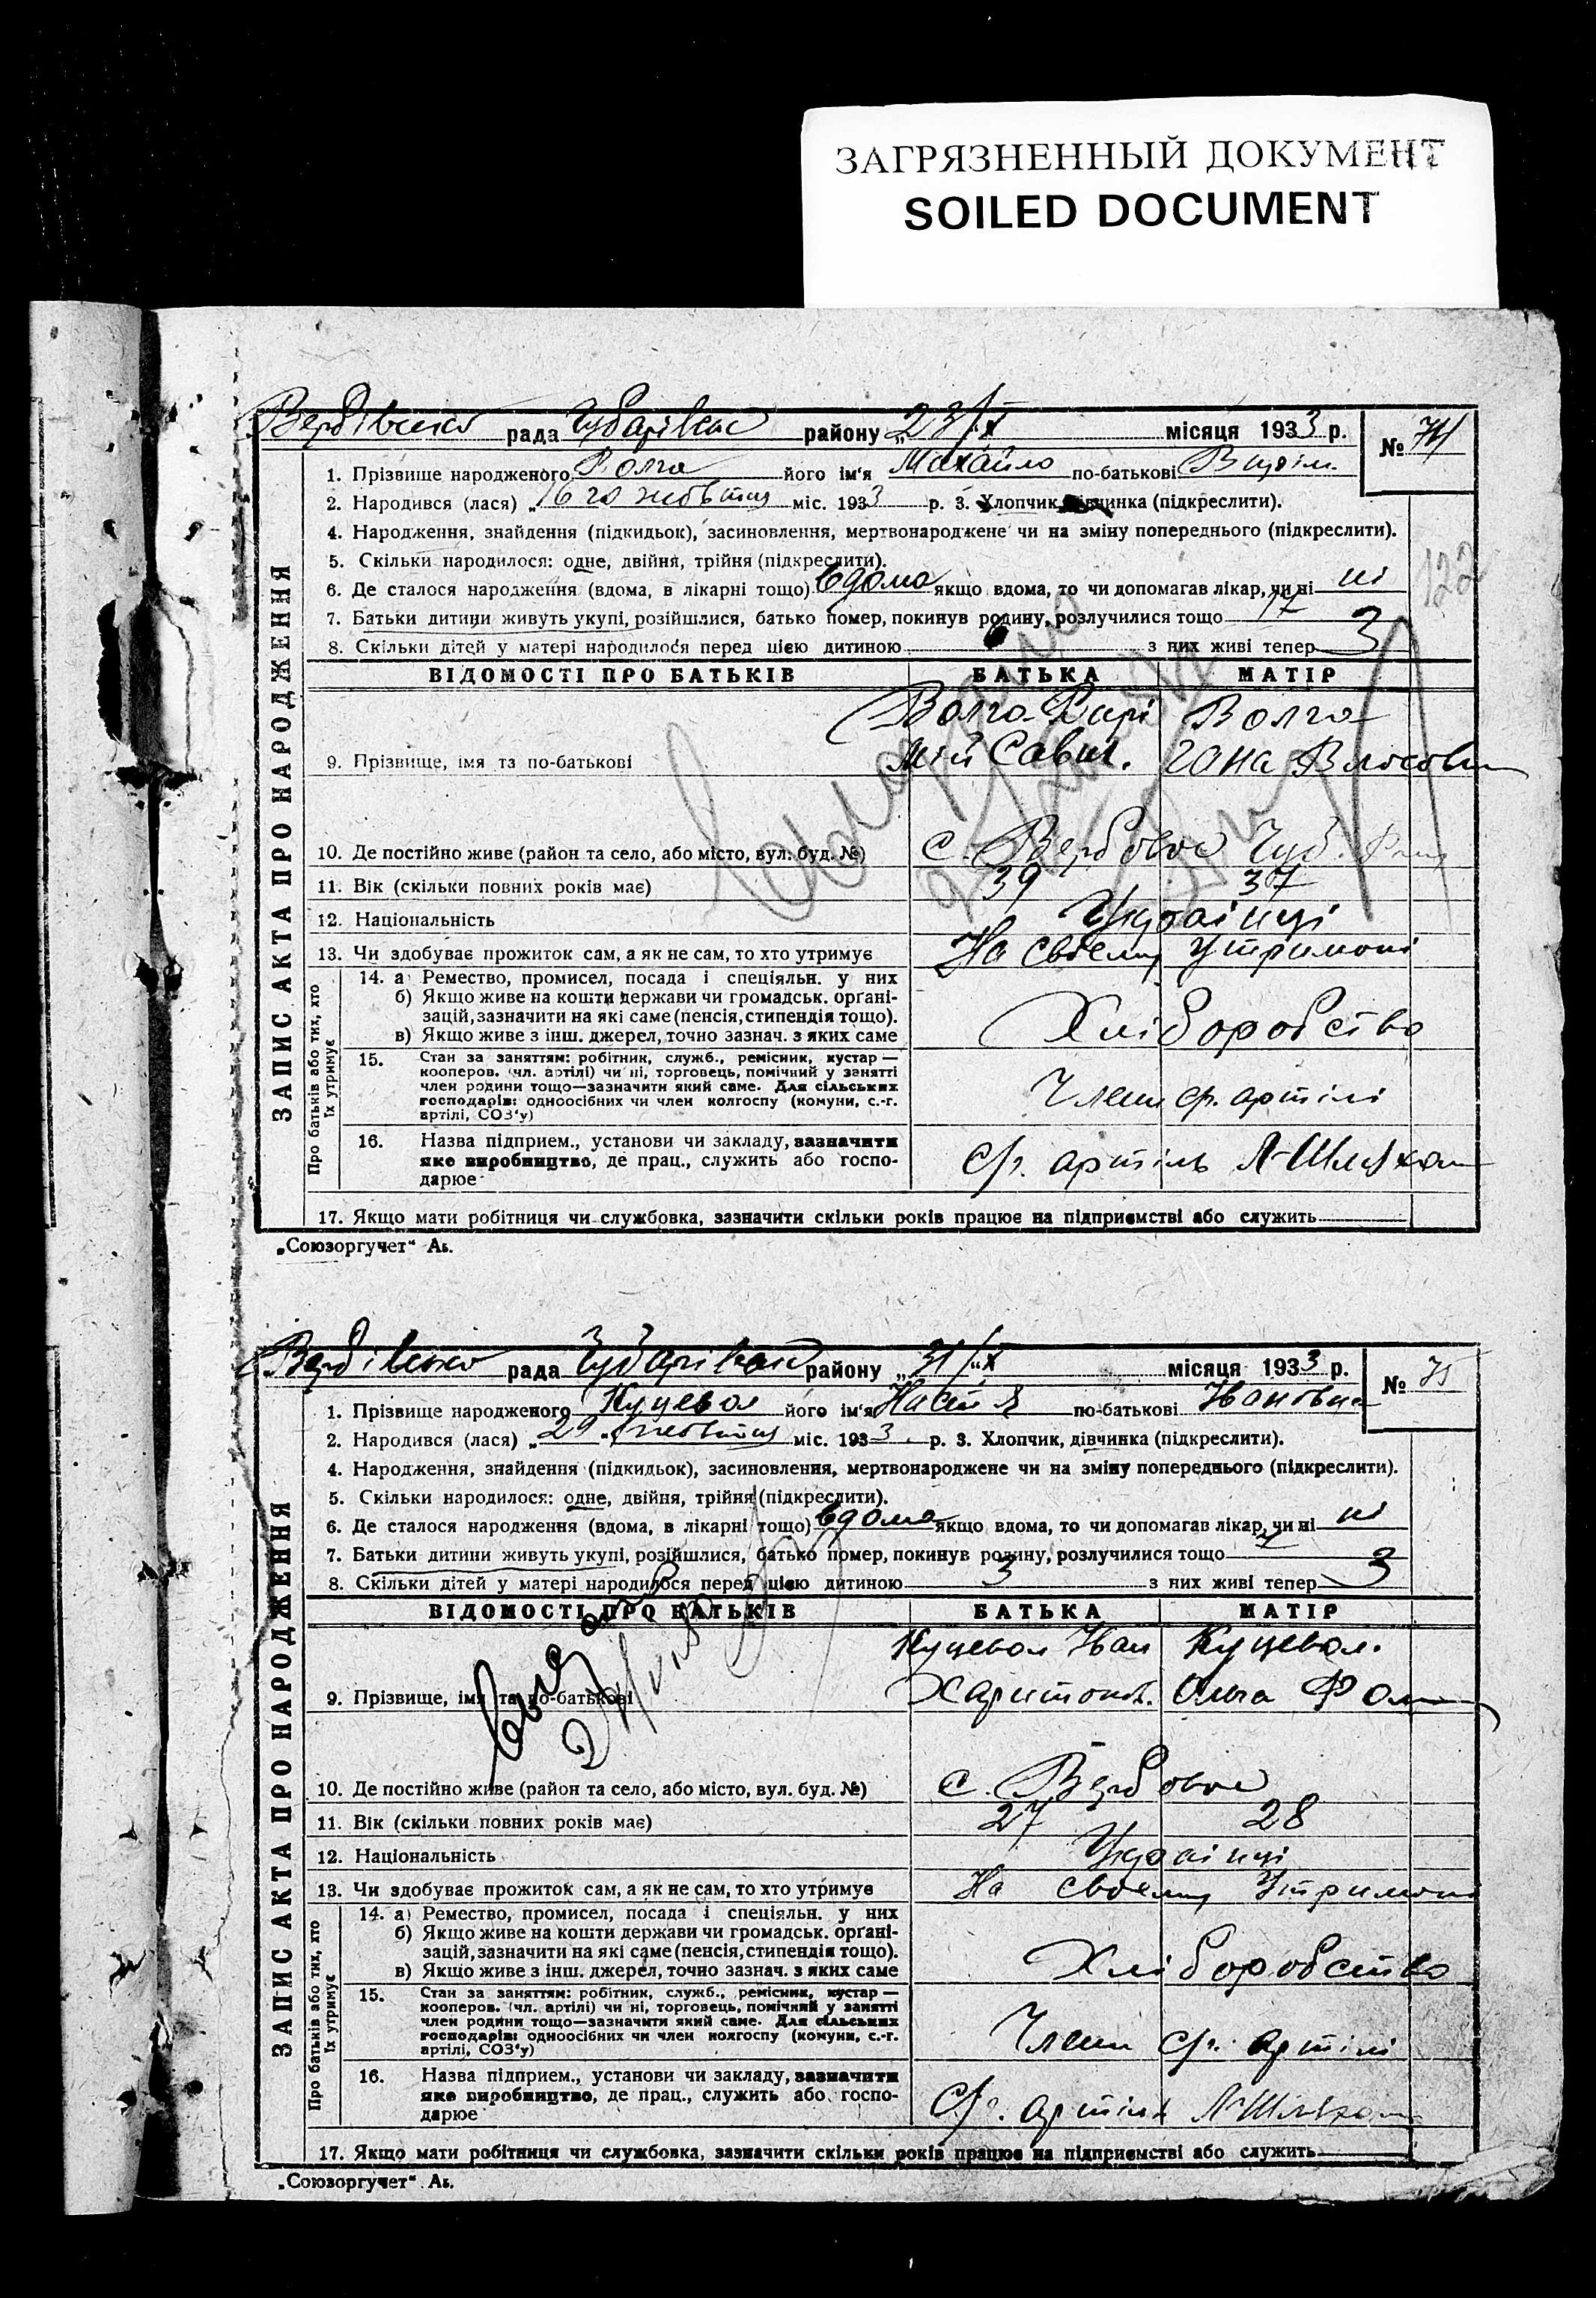 ЗАГРЯЗНЕННЫЙ ДОКУМЕНТ
SOILED DOCUMENT
рада Чубарівськ району „23/X місяця 1933 р. № 74
1. Прізвище народженого Волга його ім'я Михайло по-батькові
2. Народився (лася) „16го жовтня міс. 1933 р. 3. Хлопчик, дівчинка (підкреслити).
4. Народження, знайдення (підкидьок), засиновлення, мертвонароджене чи на зміну попереднього (підкреслити).
5. Скільки народилося: одне, двійня, трійня (підкреслити).
6. Де сталося народження (вдома, в лікарні тощо) вдома якщо вдома, то чи допомагав лікар, чи ні ні
7. Батьки дитини живуть укупі, розійшлися, батько помер, покинув родину, розлучилися тощо
8. Скільки дітей у матері народилося перед цією дитиною з них живі тепер 3
122
ЗАПИС АКТА ПРО НАРОДЖЕННЯ
ВІДОМОСТІ ПРО БАТЬКІВ БАТЬКА МАТІР
Волга Волга
9. Прізвище, імя та по-батькові Савич. Гана Власовн
10. Де постійно живе (район та село, або місто, вул. буд. №) с. Вербове Чуб.
11. Вік (скільки повних років має) 39 37
12. Національність Українці
13. Чи здобуває прожиток сам, а як не сам, то хто утримує На своему утримані
Про батьків або тих, хто їх утримує
14. а) Ремество, промисел, посада і спеціяльн. у них
б) Якщо живе на кошти держави чи громадськ. органі-
зацій, зазначити на які саме (пенсія, стипендія тощо).
в) Якщо живе з інш. джерел, точно зазнач. з яких саме
Хліборобство
15. Стан за заняттям: робітник, служб., ремісник, кустар —
кооперов. (чл. артілі) чи ні, торговець, помічний у занятті
член родини тощо—зазначити який саме. Для сільських
господарів: одноосібних чи член колгоспу (комуни, с.-г.
артілі, СОЗ'у)
Член с/г. артілі
16. Назва підприєм., установи чи закладу, зазначити
яке виробництво, де прац., служить або госпо-
дарює
с/г. артіль
17. Якщо мати робітниця чи службовка, зазначити скільки років працює на підприємстві або служить
„Союзоргучет“ Аь.
рада Чубарівськ району „31/X місяця 1933 р. № 75
1. Прізвище народженого Куцевол його ім'я Настя по-батькові Ивановна
2. Народився (лася) „29 жовтня міс. 1933 р. 3. Хлопчик, дівчинка (підкреслити).
4. Народження, знайдення (підкидьок), засиновлення, мертвонароджене чи на зміну попереднього (підкреслити).
5. Скільки народилося: одне, двійня, трійня (підкреслити).
6. Де сталося народження (вдома, в лікарні тощо) вдома якщо вдома, то чи допомагав лікар, чи ні ні
7. Батьки дитини живуть укупі, розійшлися, батько помер, покинув родину, розлучилися тощо
8. Скільки дітей у матері народилося перед цією дитиною 3 з них живі тепер 3
ЗАПИС АКТА ПРО НАРОДЖЕННЯ
ВІДОМОСТІ ПРО БАТЬКІВ БАТЬКА МАТІР
Куцевол Иван Куцевол.
9. Прізвище, імя та по-батькові Харитонов. Ольга
10. Де постійно живе (район та село, або місто, вул. буд. №) с. Вербове
11. Вік (скільки повних років має) 27 28
12. Національність Українці
13. Чи здобуває прожиток сам, а як не сам, то хто утримує На своему утримані
Про батьків або тих, хто їх утримує
14. а) Ремество, промисел, посада і спеціяльн. у них
б) Якщо живе на кошти держави чи громадськ. органі-
зацій, зазначити на які саме (пенсія, стипендія тощо).
в) Якщо живе з інш. джерел, точно зазнач. з яких саме
Хліборобство
15. Стан за заняттям: робітник, служб., ремісник, кустар —
кооперов. (чл. артілі) чи ні, торговець, помічний у занятті
член родини тощо—зазначити який саме. Для сільських
господарів: одноосібних чи член колгоспу (комуни, с.-г.
артілі, СОЗ'у)
Член с/г. артілі
16. Назва підприєм., установи чи закладу, зазначити
яке виробництво, де прац., служить або госпо-
дарює
с/г. артіль
17. Якщо мати робітниця чи службовка, зазначити скільки років працює на підприємстві або служить
„Союзоргучет“. Аь.